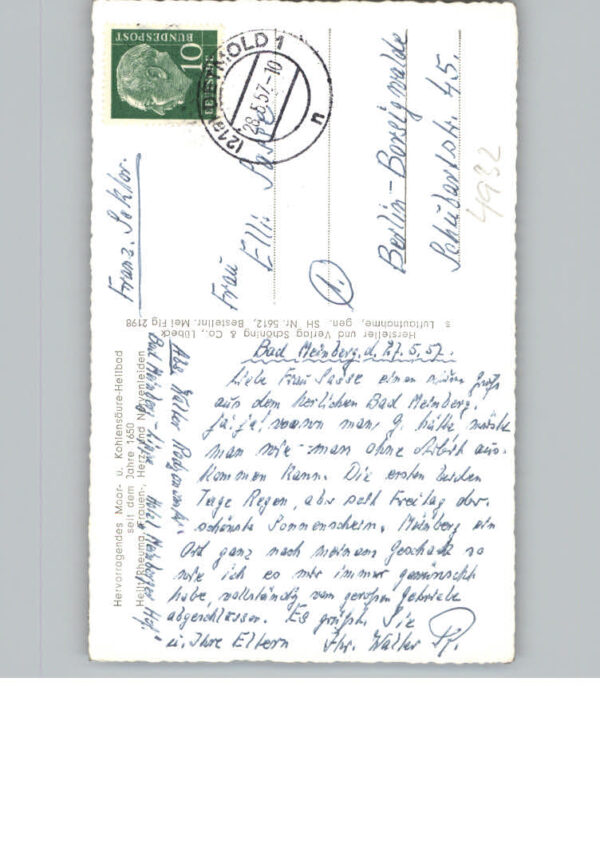 Bad Meinberg, d. 27.5.57.
Liebe Frau Sasse einen Gruß
aus dem herlichen Bad Meinberg.
ja, ja! wenn man, G. hätte, wüßte
man wie man ohne Arbeit aus-
kommen kann. Die ersten beiden
Tage Regen, aber seit Freitag der
schönste Sonnenschein. Meinberg ein
Ort ganz nach meinem Geschmack so
wie ich es mir immer gewünscht
habe, vollständig vom großen Getriebe
abgeschlossen. Es grüßt Sie
u. Ihre Eltern Ihr Walter
Abs. Walter
Bad Meinberg-Lippe Hotel Meinberger Hof.
Hervorragendes Moor- u. Kohlensäure-Heilbad
seit dem Jahre 1650
Heilt Rheuma, Frauen-, Herz- und Nervenleiden
Hersteller und Verlag Schöning & Co., Lübeck
s Luftaufnahme, gen. SH Nr. 5612, Bestellnr. Mei Flg 2198
10
BUNDESPOST
(21a) DETMOLD 1
28.5.57.-10
n
Franz. Sektor.
Frau
Elli Sasse
Berlin-Borsigwalde
Schubartstr. 45.
4932